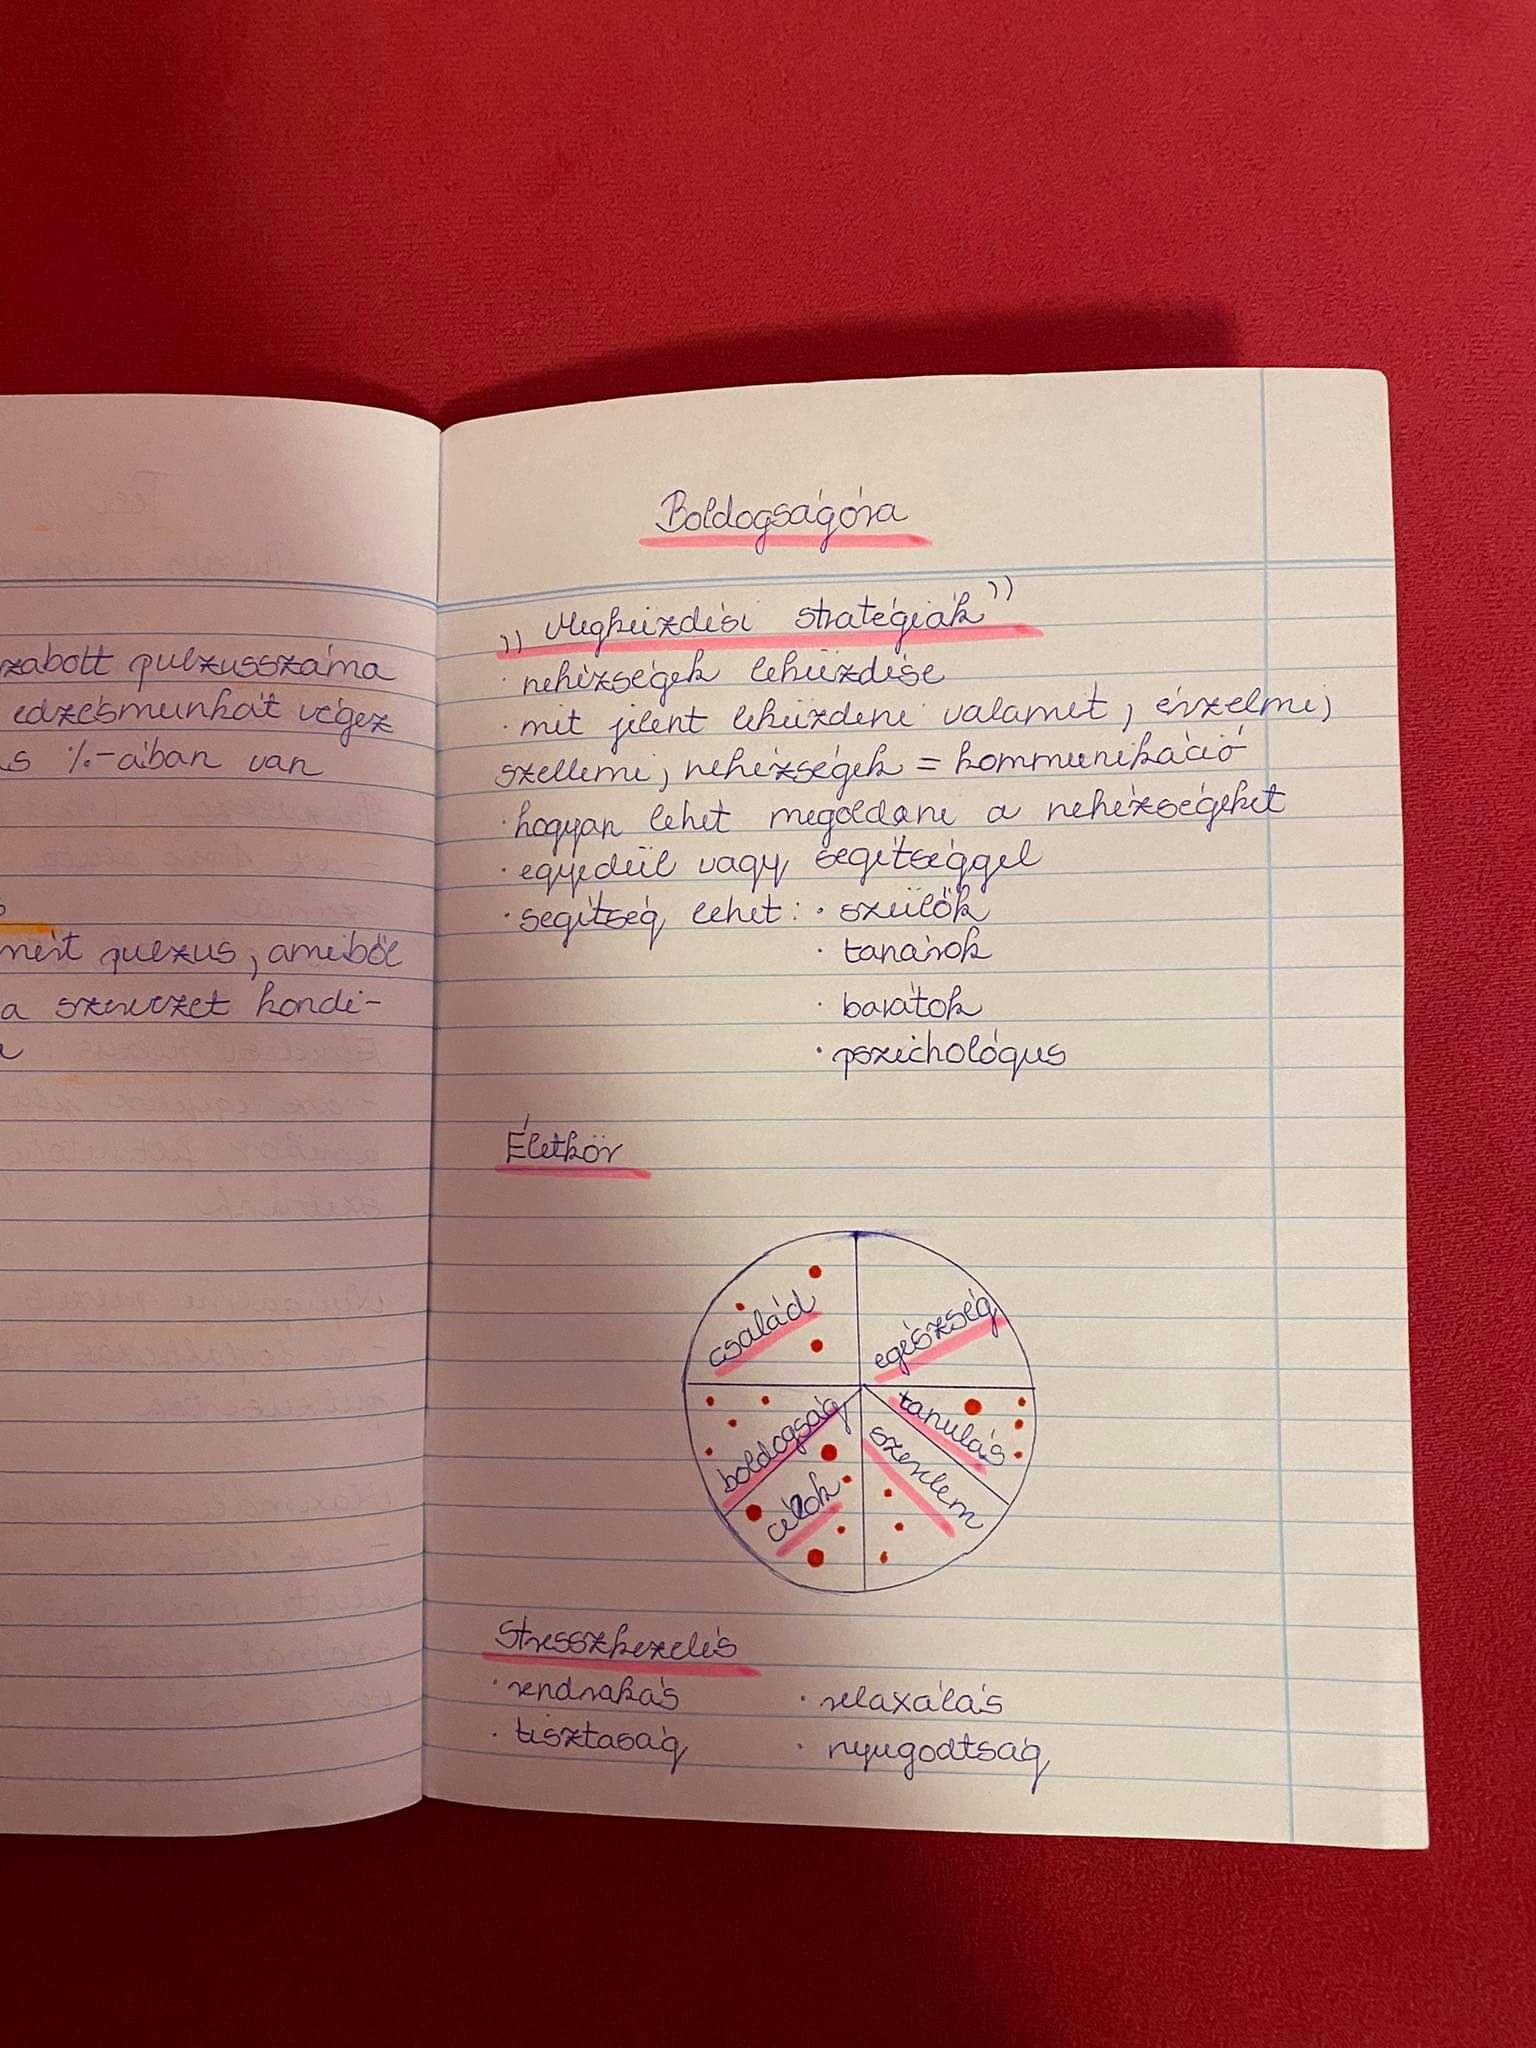 zabott pulzusszáma
edzésmunkát végez
s %-ában van
mért pulzus, amiből
a szervezet kondi-
Boldogságóra
„Megküzdési stratégiák”
· nehézségek leküzdése
· mit jelent leküzdeni valamit, érzelmi,
szellemi, nehézségek = kommunikáció
· hogyan lehet megoldani a nehézségeket
· egyedül vagy segítséggel
· segítség lehet: · szülők
· tanárok
· barátok
· pszichológus
Életkör
család
egészség
boldogság
tanulás
célok
szerelem
Stresszkezelés
· rendrakás · relaxálás
· tisztaság · nyugodtság